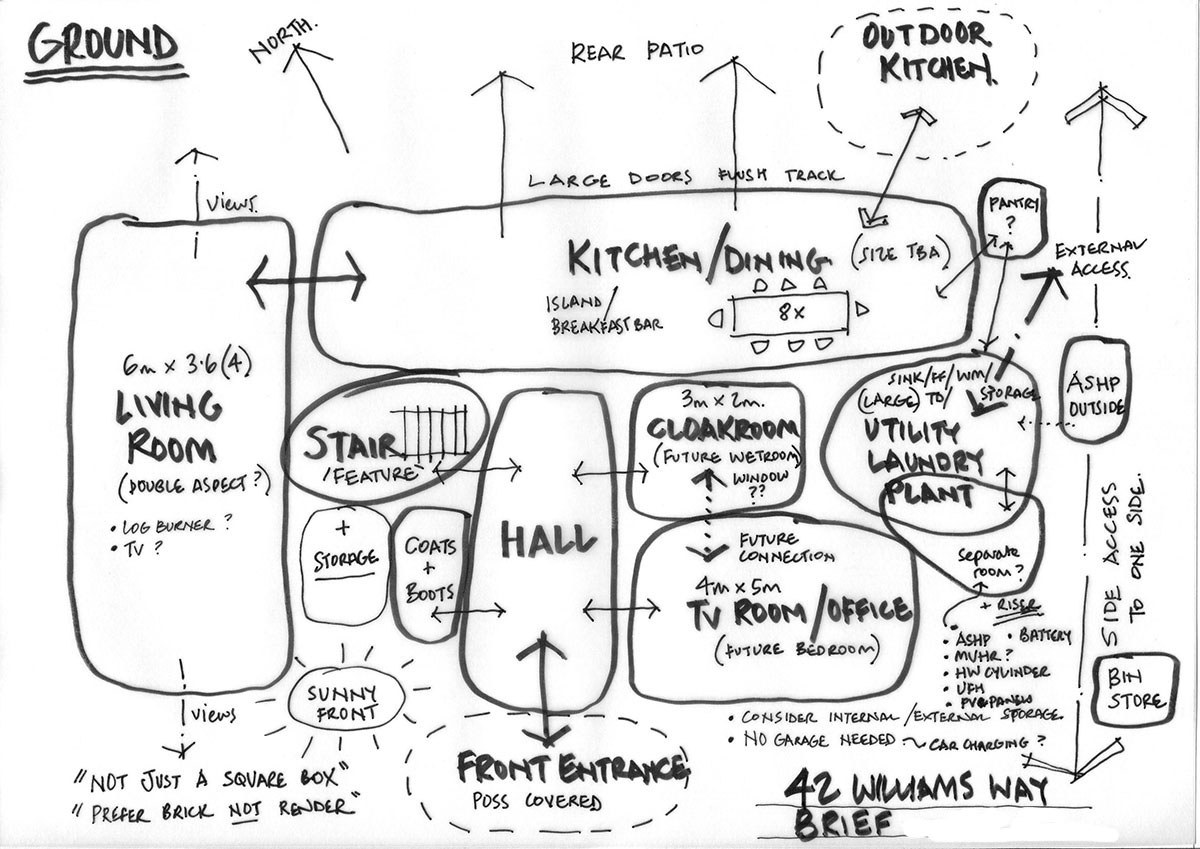 GROUND
NORTH.
REAR PATIO
OUTDOOR
KITCHEN.
LARGE DOORS FLUSH TRACK
VIEWS.
PANTRY
?
KITCHEN/DINING
(SIZE TBA)
EXTERNAL
ACCESS.
ISLAND
BREAKFAST BAR
8x
6m x 3.6(4)
LIVING
ROOM
(DOUBLE ASPECT?)
• LOG BURNER ?
• TV ?
STAIR
'FEATURE'
3m x 2m.
CLOAKROOM
(FUTURE WETROOM)
WINDOW
??
SINK/FF/WM/
(LARGE) TD/ STORAGE
UTILITY
LAUNDRY
PLANT
ASHP
OUTSIDE
+
STORAGE
COATS
+
BOOTS
HALL
FUTURE
CONNECTION
4m x 5m
TV ROOM/OFFICE
(FUTURE BEDROOM)
separate
room?
+ RISER
• ASHP • BATTERY
• MVHR?
• HW CYLINDER
• UFH
• PV PANELS
SIDE ACCESS
TO ONE SIDE.
BIN
STORE
SUNNY
FRONT
VIEWS
• CONSIDER INTERNAL/EXTERNAL STORAGE
• NO GARAGE NEEDED ~ CAR CHARGING?
FRONT ENTRANCE
POSS COVERED
"NOT JUST A SQUARE BOX"
"PREFER BRICK NOT RENDER"
42 WILLIAMS WAY
BRIEF